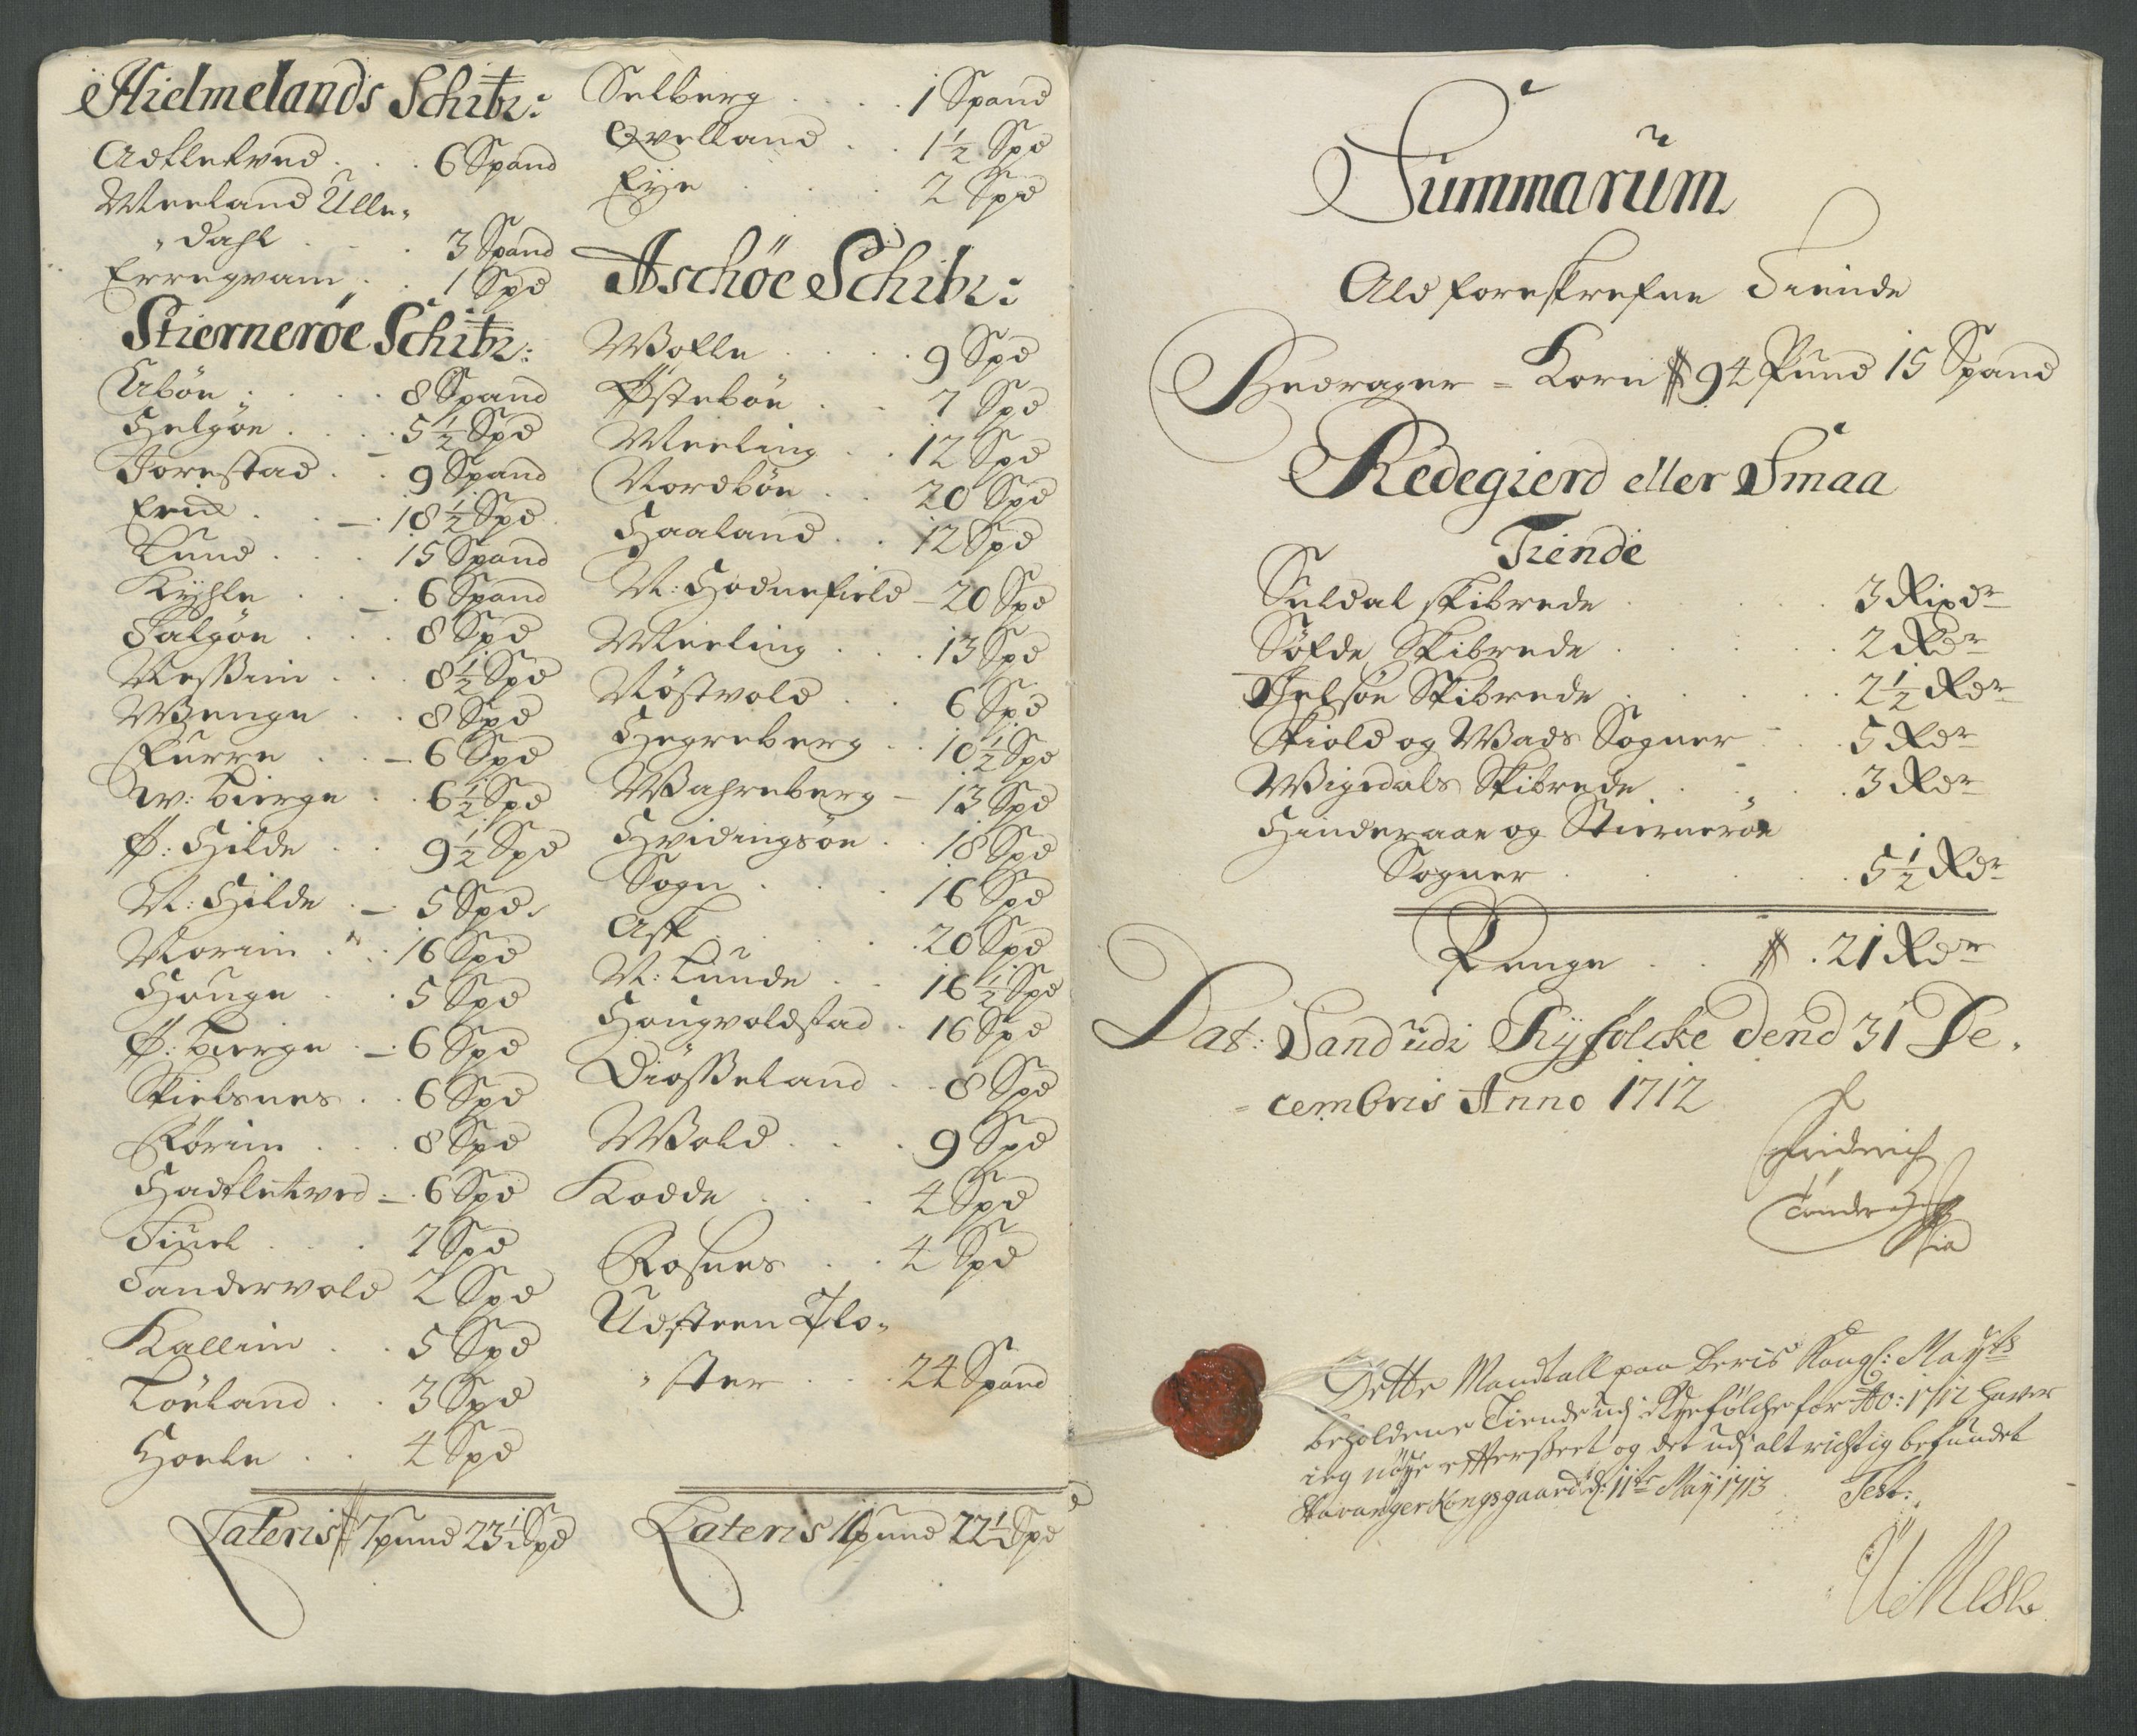 Hielmelands Schibr:
Adtletved . . . 6 Spand
Meeland Ulle„
„dahl . . . 3 Spand
Erregvam . . 1 Spd
Stiernerøe Schibr:
Aabøe . . . . 8 Spand
Helgøe . . . . 5 1/2 Spd
Jorestad . . 9 Spand
Eeie . . . 18 1/2 Spd
Lund . . . 15 Spand
Kyhle . . . 6 Spand
Talgøe . . . 8 Spd
Nessim . . . 8 1/2 Spd
Wenge . . . 8 Spd
Furre . . . 6 Spd
W: Bierge . . 6 1/2 Spd
Ø: Hilde . . 9 1/2 Spd
N: Hilde . . 5 Spd
Norim . . . 16 Spd
Houge . . 5 Spd
Ø: Bierge . . 6 Spd
Skielsnes . . 6 Spd
Førim . . . 8 Spd
Hadtletved . . 6 Spd
. . . 7 Spd
Tandervold 2 Spd
Kallim . . 5 Spd
Løeland . . 3 Spd
Hoele . . 4 Spd
Lateris 7 pund 23 1/2 Spd
Selberg . . . . 1 Spand
Qvelland . . 1 1/2 Spd
Eije . . . 2 Spd
Aschøe Schibr:
Wolle . . . . 9 Spd
Østebøe . . 7 Spd
Meeling . . 12 Spd
Nordbøe . . 20 Spd
Haaland . . 12 Spd
N: Hodnefield 20 Spd
Meeling . . . 13 Spd
Nøstvold . . 6 Spd
Hegreberg . . 10 1/2 Spd
Wahreberg 13 Spd
Hvidingsøe . . 18 Spd
Sogn . . . . 16 Spd
Ask . . . . 20 Spd
N: Lunde . . 16 1/2 Spd
Hougvoldstad . 16 Spd
Diøsseland . . 8 Spd
Wold . . . . 9 Spd
Kodde . . . 4 Spd
Rosnes . . 4 Spd
Udsteen Clo„
„ster . . . 24 Spand
Lateris 11 pund 22 1/2 Spd
Summarum
Ald foreskrefne Tiende
Bedrager = Korn 94 Pund 15 Spand
Redegierd eller Smaa
Tiende
Suldal skibrede . . . . 3 Rixdr
Søfde Skibrede . . . . 2 Rdr
Jelsøe Skibrede . . . . 2 1/2 Rdr
Skiold og Wads Sogner . . 5 Rdr
Wigedals Skibrede . . . 3 Rdr
Hinderaae og Stiernerøe
Sogner . . . . 5 1/2 Rdr
Penge . . 21 Rdr
Dat: Sand udi Ryfølcke dend 31 De„
=cembris Anno 1712
Fridrich
Tønder
Dette Mandtall paa Deris Kongl: Mayts
beholdene Tiende udj Ryefølche for Ao: 1712 haver
ieg nøye effterseet og det udj alt richtig befundet
Stavanger Kongsgaard d: 11te May 1713 Test: